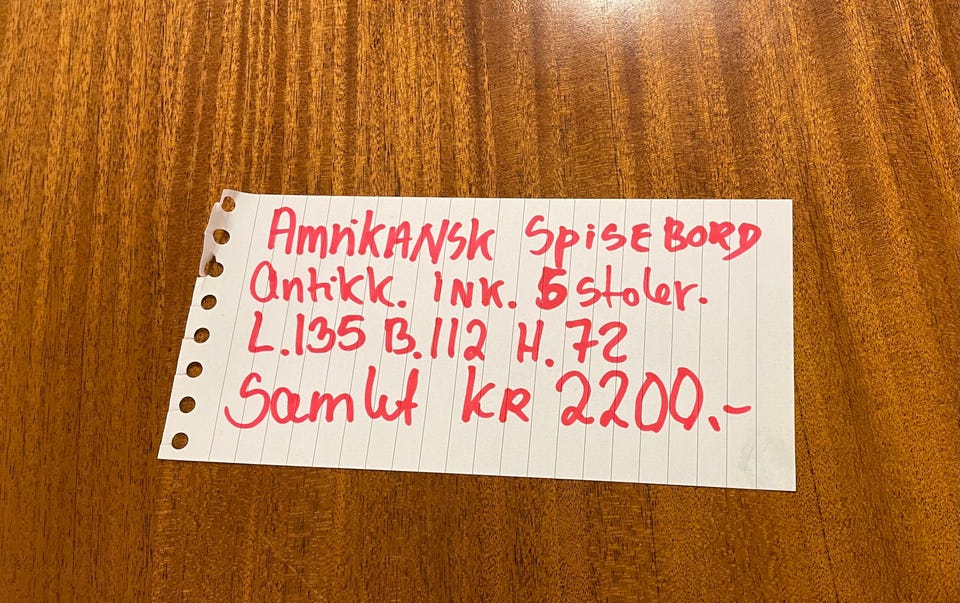 AmrikANSK SpiSEBORD
Antikk. iNK. 5 stoler.
L.135 B.112 H.72
Samlet KR 2200.-